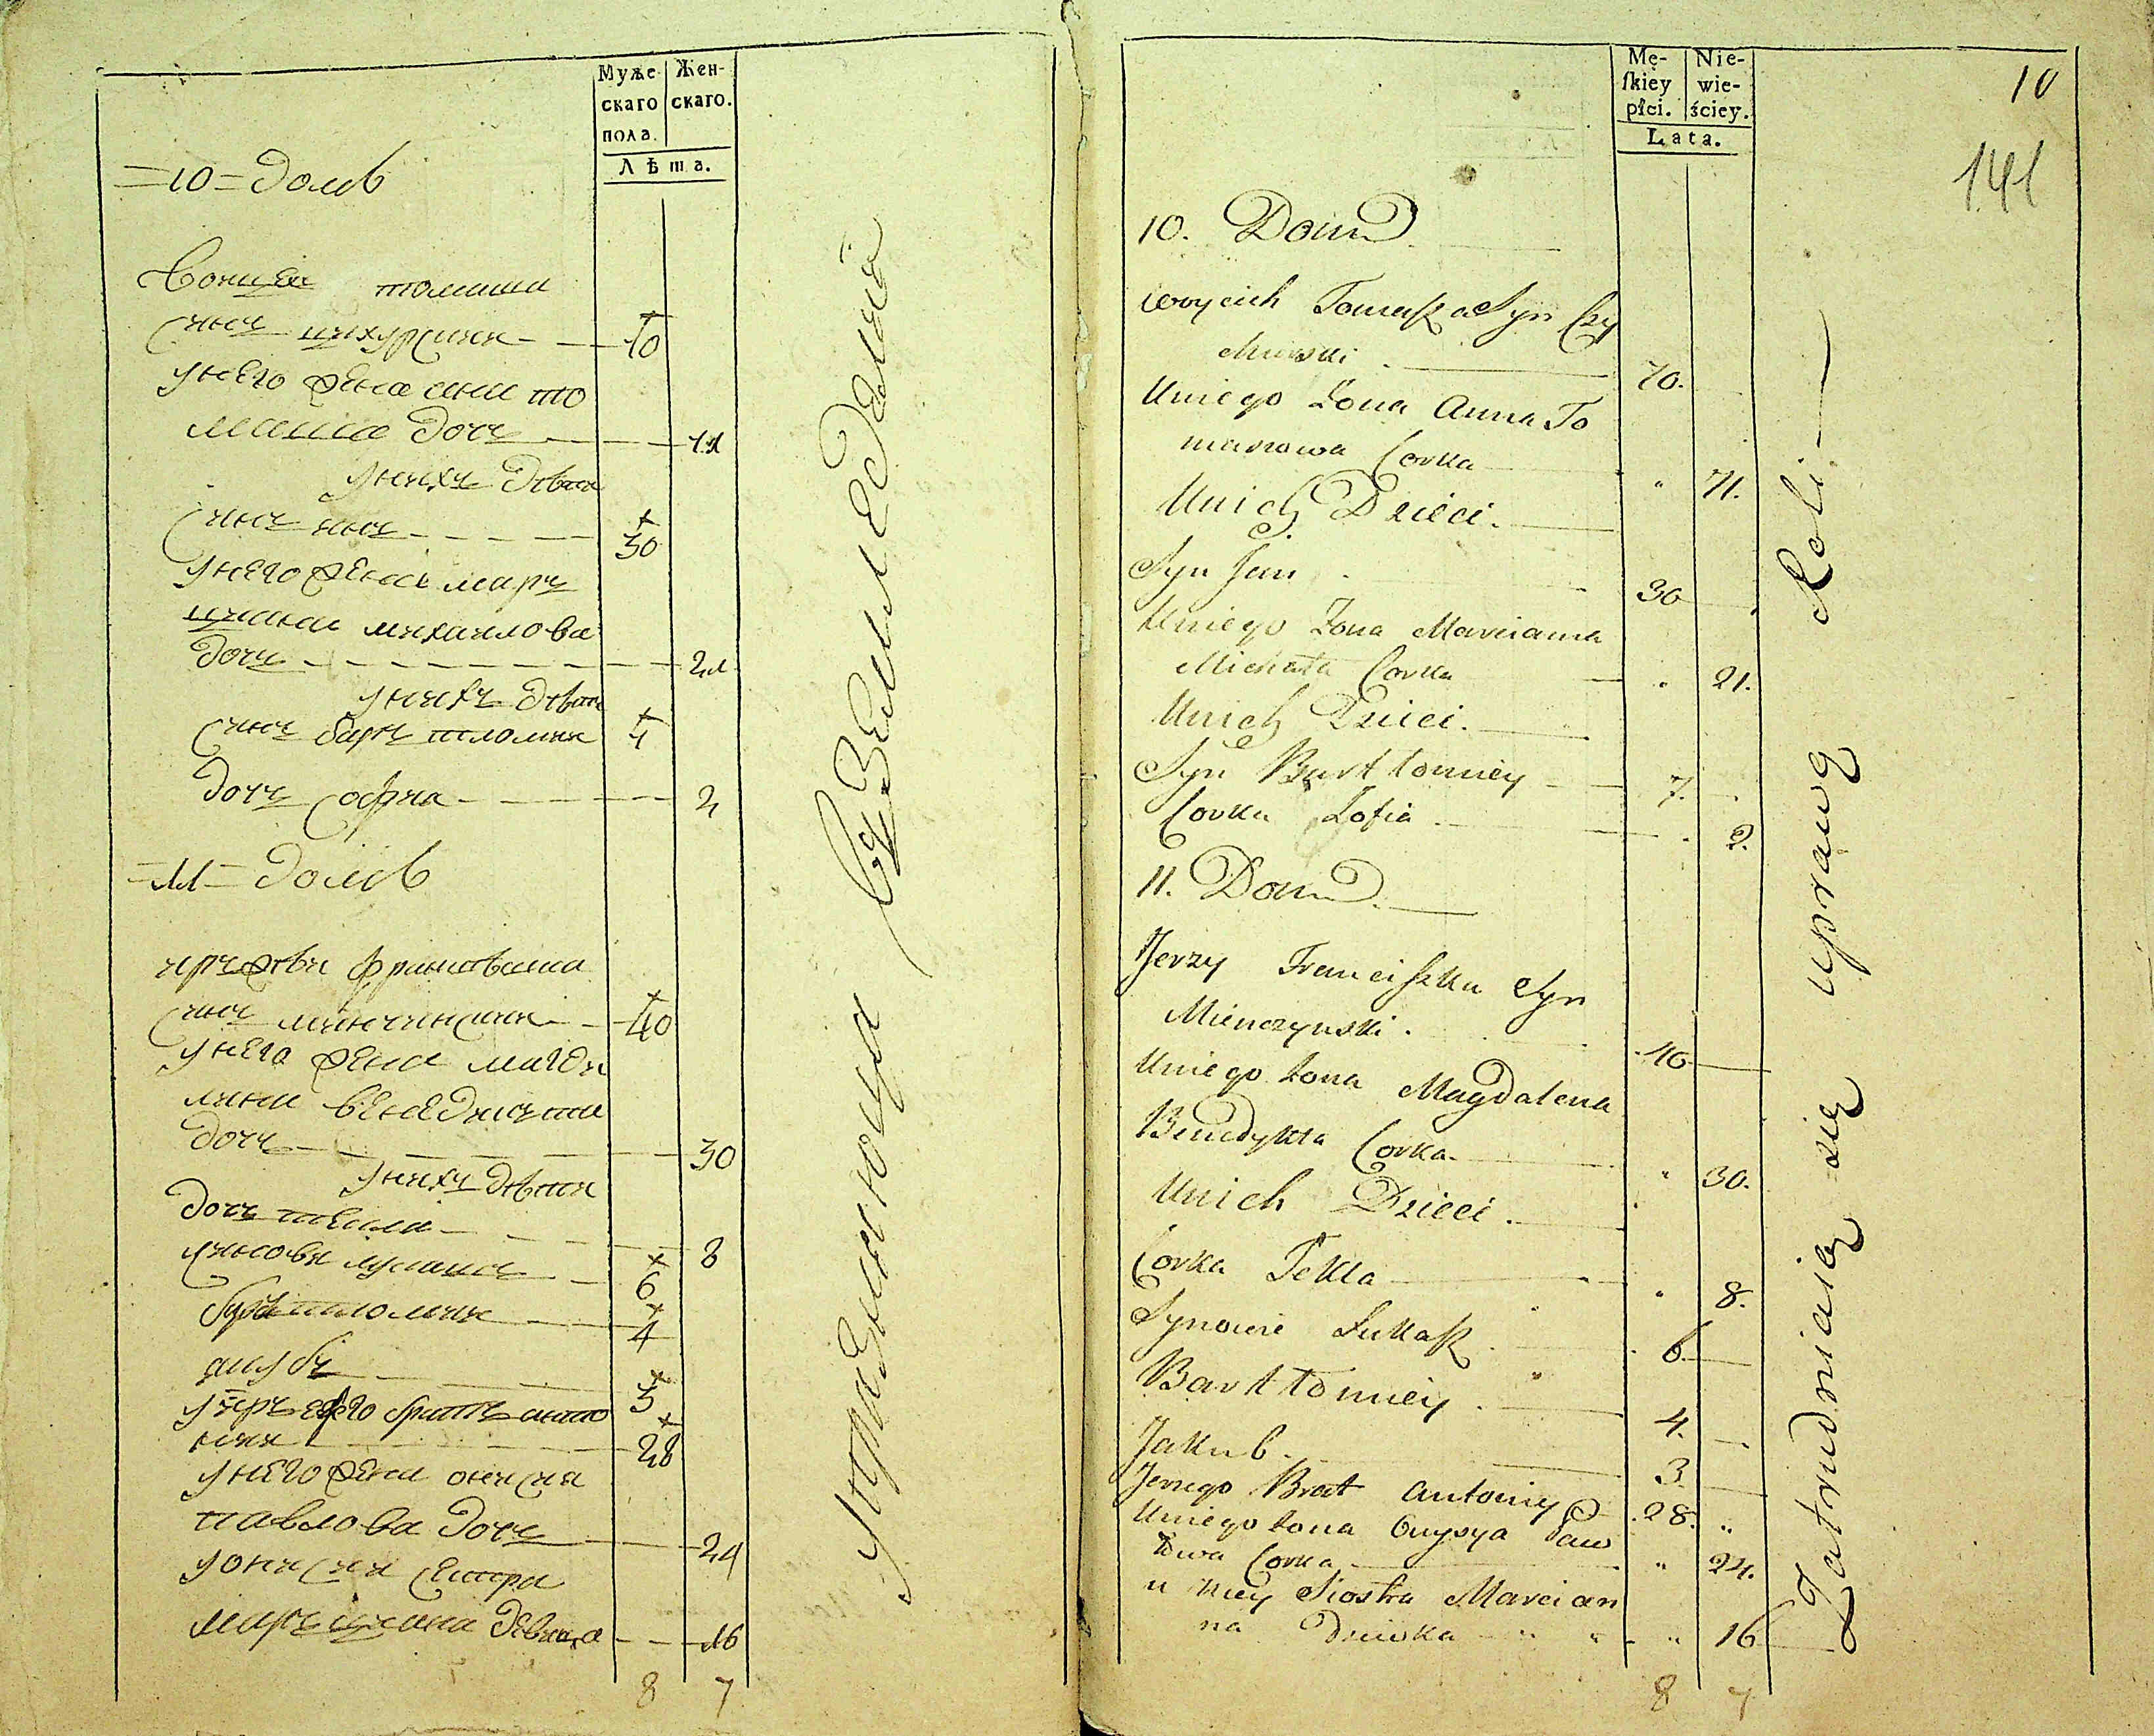 Муже
скаго
пола.
Жен-
скаго.
Лѣта.
=10= Домъ
томаша
сынъ 70
У него жена анна то
маша дочъ 71
У нихъ дѣти
Сынъ янъ 30
У него жена марц
цианна михаилова
дочъ 21
У нихъ дѣти
Сынъ бартломѣй 7
Дочъ Софiя 2
=11= Домъ
Франтишка
сынъ 40
У него жена магда
лина Венедикта
дочъ 30
У нихъ дѣти
Дочъ текля 8
Сыновя лукашъ 6
бартломѣй 4
якубъ 3
его братъ анто
нiй 28
У него жена
павлова дочъ 24
сестра
марцианна девица 16
8 7
Упражняются въ земледелiи
Mę-
skiey
płci.
Nie-
wie-
ściey.
Lata.
10
141
10. Dom
Woyciech Tomasza Syn Czy
chowski 70.
U niego Żona Anna To
maszowa Corka " 71.
U nich Dzieci.
Syn Jan 30
U niego Żona Marcianna
Michała Corka 21.
U nich Dzieci.
Syn Barttomiey 7.
Corka Zofia 2.
11. Dom
Jerzy Franciszka Syn
Mienczynski. 40
U niego Żona Magdalena
Benedykta Corka " 30.
U nich Dzieci.
Corka Tekla " 8.
Synowie Łukasz 6.
Barttomiey 4.
Jakub. 3
Jerzego Brat Antoniy 28. "
U niego Żona Onysya Paw
łowa Corka " 24.
u niey Siostra Marcian
na Dziewka " 16
8 7
Zatrudniaią się uprawą Roli